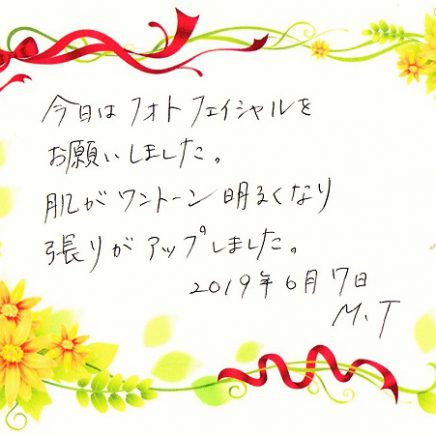 今日はフォトフェイシャルを
お願いしました。
肌がワントーン明るくなり
張りがアップしました。
2019年6月7日
M.T